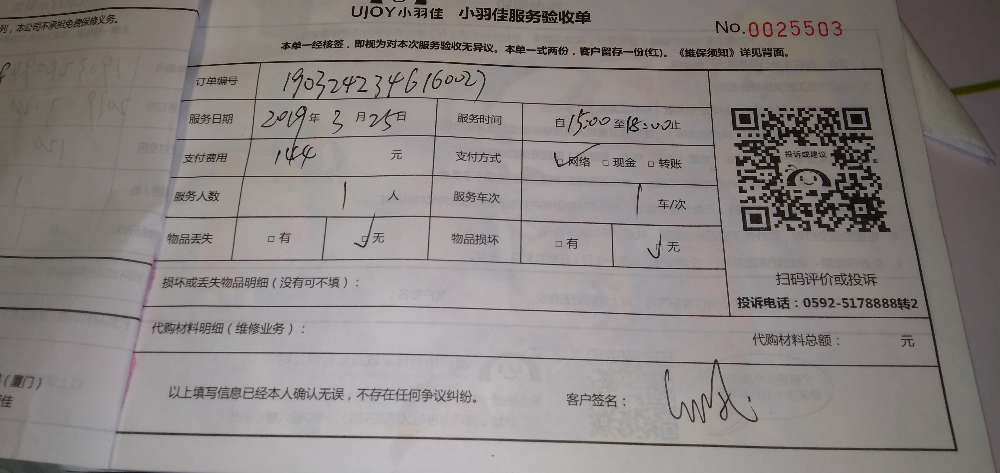 列，本公司不承担免费保修义务。
UJOY小羽佳 小羽佳服务验收单
No.0025503
本单一经核签，即视为对本次服务验收无异议。本单一式两份，客户留存一份(红)。《维保须知》详见背面。
订单编号 1903242346160027
服务日期 2019年3月25日 服务时间 自15:00至18:00止
支付费用 144 元 支付方式 网络 □ 现金 □ 转账
服务人数 1 人 服务车次 1 车/次
物品丢失 □ 有 □ 无 物品损坏 □ 有 □ 无
投诉或建议
扫码评价或投诉
投诉电话：0592-5178888转2
损坏或丢失物品明细（没有可不填）：
代购材料明细（维修业务）： 代购材料总额： 元
以上填写信息已经本人确认无误，不存在任何争议纠纷。 客户签名：
（厦门）
佳